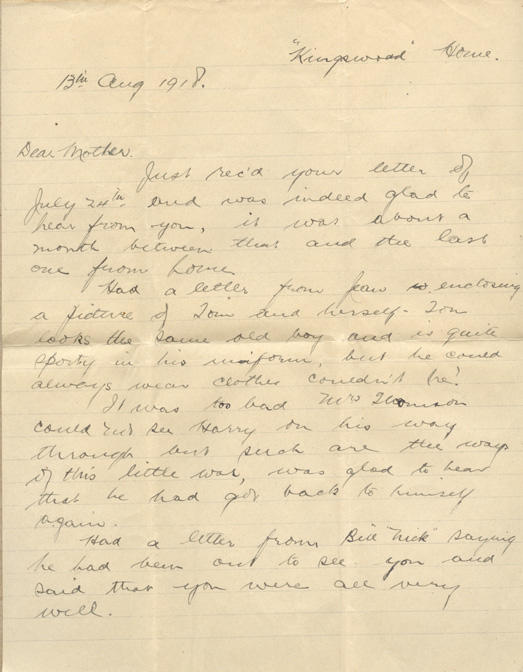 "Kingswood" Home.
13th Aug 1918.
Dear Mother.
Just rec'd your letter of
July 24th and was indeed glad to
hear from you, it was about a
month between that and the last
one from home
Had a letter from Jean enclosing
a picture of Tom and herself- Tom
looks the same old boy and is quite
sporty in his uniform, but he could
always wear clothes couldn't he?
It was too bad Mrs Thomson
could not see Harry on his way
through but such are the ways
of this little war, was glad to hear
that he had got back to himself
again.
Had a letter from Bill "Nick" saying
he had been out to see you and
said that you were all very
well.